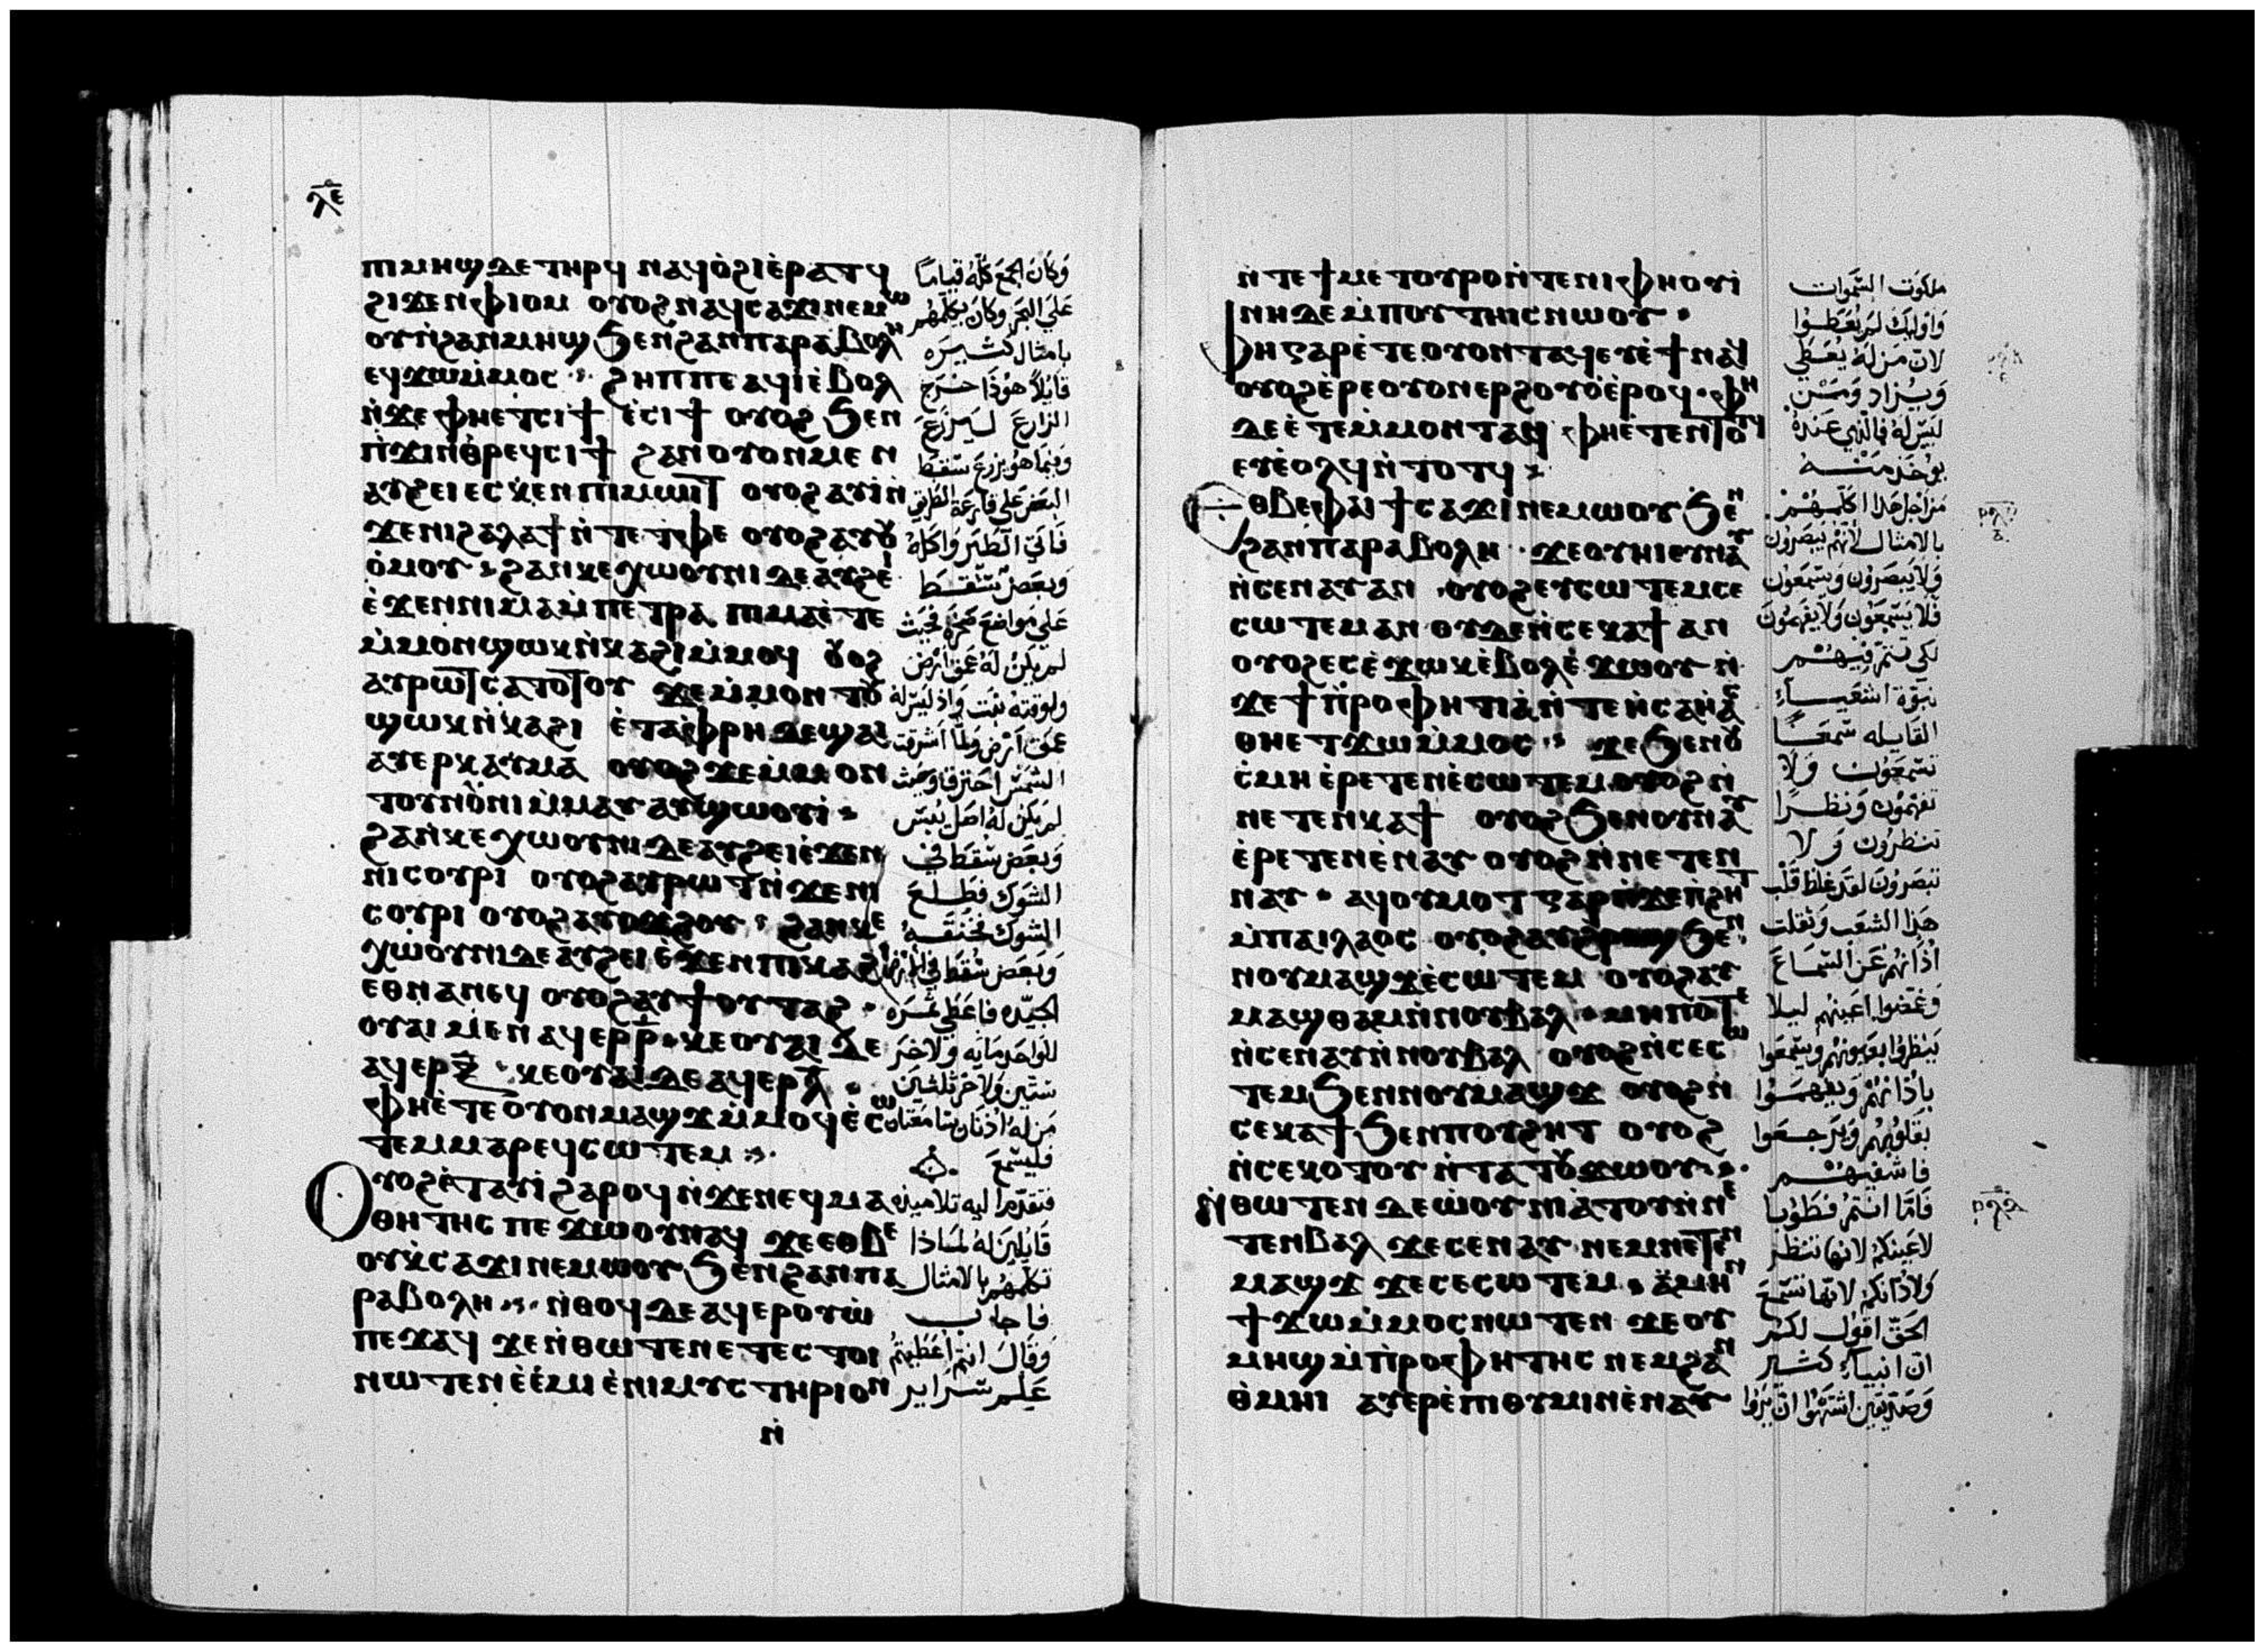 ⲗⲉ
ⲡⲓⲙⲏϣ ⲇⲉ ⲧⲏⲣϥ ⲛⲁϥⲟ̀ϩⲓ ⲉ̀ⲣⲁⲧϥ
ϩⲓϫⲉⲛ ⲫⲓⲟⲙ ⲟⲩⲟϩ ⲛⲁϥⲥⲁϫⲓ ⲛⲉⲙⲱ
ⲟⲩ ⲛ̀ϩⲁⲛⲙⲏϣ ϧⲉⲛ ϩⲁⲛⲡⲁⲣⲁⲃⲟⲗⲏ
ⲉϥϫⲱ ⲙ̀ⲙⲟⲥ ϩⲏⲡⲡⲉ ⲁϥⲓ̀ ⲉ̀ⲃⲟⲗ
ⲛ̀ϫⲉ ⲫⲏⲉⲧⲥⲓϯ ⲉ̀ⲥⲓϯ ⲟⲩⲟϩ ϧⲉⲛ
ⲡ̀ϫⲓⲛⲑ̀ⲣⲉϥⲥⲓϯ ϩⲁⲛⲟⲩⲟⲛ ⲙⲉⲛ
ⲁⲩϩⲉⲓ ⲉⲥⲕⲉⲛ ⲡⲓⲙⲱⲓⲧ ⲟⲩⲟϩ ⲁⲩⲓ̀ ⲛ̀
ϫⲉ ⲛⲓϩⲁⲗⲁϯ ⲛ̀ⲧⲉ ⲧ̀ⲫⲉ ⲟⲩⲟϩ ⲁⲩⲟⲩ
ⲟ̀ⲙⲟⲩ ϩⲁⲛⲕⲉⲭⲱⲟⲩⲛⲓ ⲇⲉ ⲁⲩϩⲉⲓ
ⲉ̀ϫⲉⲛ ⲛⲓⲙⲁ ⲙ̀ⲡⲉⲧⲣⲁ ⲡⲓⲙⲁ ⲉ̀ⲧⲉ
ⲙ̀ⲙⲟⲛ ϣⲱⲕ ⲛ̀ⲕⲁϩⲓ ⲙ̀ⲙⲟϥ ⲟⲩⲟϩ
ⲁⲩⲣⲱⲧ ⲥⲁⲧⲟⲧⲟⲩ ϫⲉ ⲙ̀ⲙⲟⲛⲧⲟⲩ
ϣⲱⲕ ⲛ̀ⲕⲁϩⲓ ⲉ̀ⲧⲁ ⲫ̀ⲣⲏ ⲇⲉ ϣⲁⲓ
ⲁⲩⲉⲣⲕⲁⲩⲙⲁ ⲟⲩⲟϩ ϫⲉ ⲙ̀ⲙⲟⲛ
ⲧⲟⲩⲛⲟⲩⲛⲓ ⲙ̀ⲙⲁⲩ ⲁⲩϣⲱⲟⲩⲓ̀
ϩⲁⲛⲕⲉⲭⲱⲟⲩⲛⲓ ⲇⲉ ⲁⲩϩⲉⲓ ⲉ̀ϫⲉⲛ
ⲛⲓⲥⲟⲩⲣⲓ ⲟⲩⲟϩ ⲁⲩⲣⲱⲧ ⲛ̀ϫⲉ ⲛⲓ
ⲥⲟⲩⲣⲓ ⲟⲩⲟϩ ⲁⲩⲟϫϩⲟⲩ ϩⲁⲛⲕⲉ
ⲭⲱⲟⲩⲛⲓ ⲇⲉ ⲁⲩϩⲉⲓ ⲉ̀ϫⲉⲛ ⲡⲓⲕⲁϩⲓ
ⲉⲑⲛⲁⲛⲉϥ ⲟⲩⲟϩ ⲁⲩϯⲟⲩⲧⲁϩ
ⲟⲩⲁⲓ ⲙⲉⲛ ⲁϥⲉⲣ ⲣ̅ ⲕⲉⲟⲩⲁⲓ ⲇⲉ
ⲁϥⲉⲣ ⲝ̅ ⲕⲉⲟⲩⲁⲓ ⲇⲉ ⲁϥⲉⲣ ⲗ̅
ⲫⲏⲉ̀ⲧⲉ ⲟⲩⲟⲛ ⲙⲁϣϫ ⲙ̀ⲙⲟϥ ⲉ̀ⲥⲱ
ⲧⲉⲙ ⲙⲁⲣⲉϥⲥⲱⲧⲉⲙ
ⲟⲩⲟϩ ⲉ̀ⲧⲁⲩⲓ̀ ϩⲁⲣⲟϥ ⲛ̀ϫⲉ ⲛⲉϥⲙⲁ
ⲑⲏⲧⲏⲥ ⲡⲉϫⲱⲟⲩ ⲛⲁϥ ϫⲉ ⲉⲑⲃⲉ
ⲟⲩ ⲕ̀ⲥⲁϫⲓ ⲛⲉⲙⲱⲟⲩ ϧⲉⲛ ϩⲁⲛⲡⲁ
ⲣⲁⲃⲟⲗⲏ ⲛ̀ⲑⲟϥ ⲇⲉ ⲁϥⲉⲣⲟⲩⲱ̀
ⲡⲉϫⲁϥ ϫⲉ ⲛ̀ⲑⲱⲧⲉⲛ ⲉⲧⲉⲥⲧⲟⲓ
ⲛⲱⲧⲉⲛ ⲉ̀ⲉ̀ⲙⲓ ⲉ̀ⲛⲓⲙⲩⲥⲧⲏⲣⲓⲟⲛ
ⲛ̀
وكان الجمع كله قياماً
على البحر وكان يكلمهم
بامثال كثيره
قايلاً هوذا خرج
الزارع ليزرع
وفيما هو يزرع سقط
البعض على قارعة الطريق
فاتي الطير واكله
وبعض سقط
على مواضع صخره بحيث
لم يكن له عمق ارض
ولوقته نبت واذ ليس له
عمق ارض ولما اشرقت
الشمس احترقا وحيث
لم يكن له اصل يبس
وبعض سقط في
الشوك فطلع
الشوك فخنقه
وبعض سقط في الارض
الجيده فاعطى ثمره
للواحد مايه ولاخر
ستين ولاخر ثلثين
من له اذنان سامعتان
فليسمع
فتقدموا اليه تلاميذه
قايلين له لماذا
تكلمهم بالامثال
فاجاب
وقال انتم اعطيتم
علم سراير
ⲛ̀ⲧⲉ ϯⲙⲉⲧⲟⲩⲣⲟ ⲛ̀ⲧⲉ ⲛⲓⲫⲏⲟⲩⲓ̀
ⲛⲏ ⲇⲉ ⲙ̀ⲡⲟⲩⲧⲏⲓⲥ ⲛⲱⲟⲩ
ⲫⲏ ⲅⲁⲣ ⲉ̀ⲧⲉ ⲟⲩⲟⲛⲧⲁϥ ⲉⲩⲉ̀ϯ ⲛⲁϥ
ⲟⲩⲟϩ ⲉ̀ⲣⲉ ⲟⲩⲟⲛ ⲉⲣϩⲟⲩⲟ̀ ⲉ̀ⲣⲟϥ ⲫⲏ
ⲇⲉ ⲉ̀ⲧⲉ ⲙ̀ⲙⲟⲛⲧⲁϥ ⲫⲏⲉ̀ⲧⲉⲛⲧⲟⲧϥ
ⲉⲩⲉ̀ⲟⲗϥ ⲛ̀ⲧⲟⲧϥ
ⲉⲑⲃⲉ ⲫⲁⲓ ϯⲥⲁϫⲓ ⲛⲉⲙⲱⲟⲩ ϧⲉⲛ
ϩⲁⲛⲡⲁⲣⲁⲃⲟⲗⲏ ϫⲉ ⲟⲩⲏⲓ ⲉⲩⲛⲁⲩ
ⲛ̀ⲥⲉⲛⲁⲩ ⲁⲛ ⲟⲩⲟϩ ⲉⲩⲥⲱⲧⲉⲙ ⲥⲉ
ⲥⲱⲧⲉⲙ ⲁⲛ ⲟⲩⲇⲉ ⲛ̀ⲥⲉⲕⲁϯ ⲁⲛ
ⲟⲩⲟϩ ⲉⲥⲉ̀ϫⲱⲕ ⲉ̀ⲃⲟⲗ ⲉ̀ϫⲱⲟⲩ ⲛ̀
ϫⲉ ϯⲡ̀ⲣⲟⲫⲏⲧⲓⲁ ⲛ̀ⲧⲉ ⲛ̀ⲥⲁⲏⲁⲥ
ⲑⲏⲉⲧϫⲱ ⲙ̀ⲙⲟⲥ ϫⲉ ϧⲉⲛ ⲟⲩ
ⲥ̀ⲙⲏ ⲉ̀ⲣⲉⲧⲉⲛⲉ̀ⲥⲱⲧⲉⲙ ⲟⲩⲟϩ ⲛ̀
ⲛⲉⲧⲉⲛⲕⲁϯ ⲟⲩⲟϩ ϧⲉⲛ ⲟⲩⲛⲁⲩ
ⲉ̀ⲣⲉⲧⲉⲛⲉ̀ⲛⲁⲩ ⲟⲩⲟϩ ⲛ̀ⲛⲉⲧⲉⲛ
ⲛⲁⲩ ⲁϥⲟⲩⲙⲟⲧ ⲅⲁⲣ ⲛ̀ϫⲉ ⲡ̀ϩⲏⲧ
ⲙ̀ⲡⲁⲓⲗⲁⲟⲥ ⲟⲩⲟϩ ⲁⲩϩ̀ⲣⲟϣ ϧⲉⲛ
ⲛⲟⲩⲙⲁϣϫ ⲉ̀ⲥⲱⲧⲉⲙ ⲟⲩⲟϩ ⲁⲩ
ⲙⲁϣⲑⲁⲙ ⲛ̀ⲛⲟⲩⲃⲁⲗ ⲙⲏⲡⲟⲧⲉ
ⲛ̀ⲥⲉⲛⲁⲩ ⲛ̀ⲛⲟⲩⲃⲁⲗ ⲟⲩⲟϩ ⲛ̀ⲥⲉⲥⲱ
ⲧⲉⲙ ϧⲉⲛ ⲛⲟⲩⲙⲁϣϫ ⲟⲩⲟϩ ⲛ̀
ⲥⲉⲕⲁϯ ϧⲉⲛ ⲡⲟⲩϩⲏⲧ ⲟⲩⲟϩ
ⲛ̀ⲥⲉⲕⲟⲧⲟⲩ ⲛ̀ⲧⲁⲧⲟⲩϫⲱⲟⲩ
ⲛ̀ⲑⲱⲧⲉⲛ ⲇⲉ ⲱ̀ⲟⲩⲛⲓⲁ̀ⲧⲟⲩ ⲛ̀ⲛⲉ
ⲧⲉⲛⲃⲁⲗ ϫⲉ ⲥⲉⲛⲁⲩ ⲛⲉⲙ ⲛⲉⲧⲉⲛ
ⲙⲁϣϫ ϫⲉ ⲥⲉⲥⲱⲧⲉⲙ ⲁ̀ⲙⲏⲛ
ϯϫⲱ ⲙ̀ⲙⲟⲥ ⲛⲱⲧⲉⲛ ϫⲉ ⲟⲩ
ⲙⲏϣ ⲙ̀ⲡ̀ⲣⲟⲫⲏⲧⲏⲥ ⲛⲉⲙ ϩⲁⲛ
ⲑ̀ⲙⲏⲓ ⲁⲩⲉⲣⲉ̀ⲡⲓⲑⲩⲙⲓⲛ ⲉ̀ⲛⲁⲩ
ملكوت السموات
واوليك لم يعطوا
لان من له يعطي
ويزاد ومن
ليس له فالذي عنده
يوخذ منه
من اجل هذا اكلمهم
بالامثال لانهم يبصرون
ولا يبصرون ويسمعون
فلا يسمعون ولا يفهمون
لكي تتم فيهم
نبوة اشعياء
القايله سمعاً
تسمعون ولا
تفهمون ونظرا
تنظرون ولا
تبصرون لقد غلظ قلب
هذا الشعب وثقلت
اذانهم عن السماع
وغمضوا اعينهم ليلا
ينظروا بعيونهم ويسمعوا
باذانهم ويفهموا
بقلوبهم ويرجعوا
فاشفيهم
فاما انتم فطوبا
لاعينكم لانها تنظر
ولاذانكم لانها تسمع
الحق اقول لكم
ان انبياء كثير
وصديقين اشتهوا ان يروا